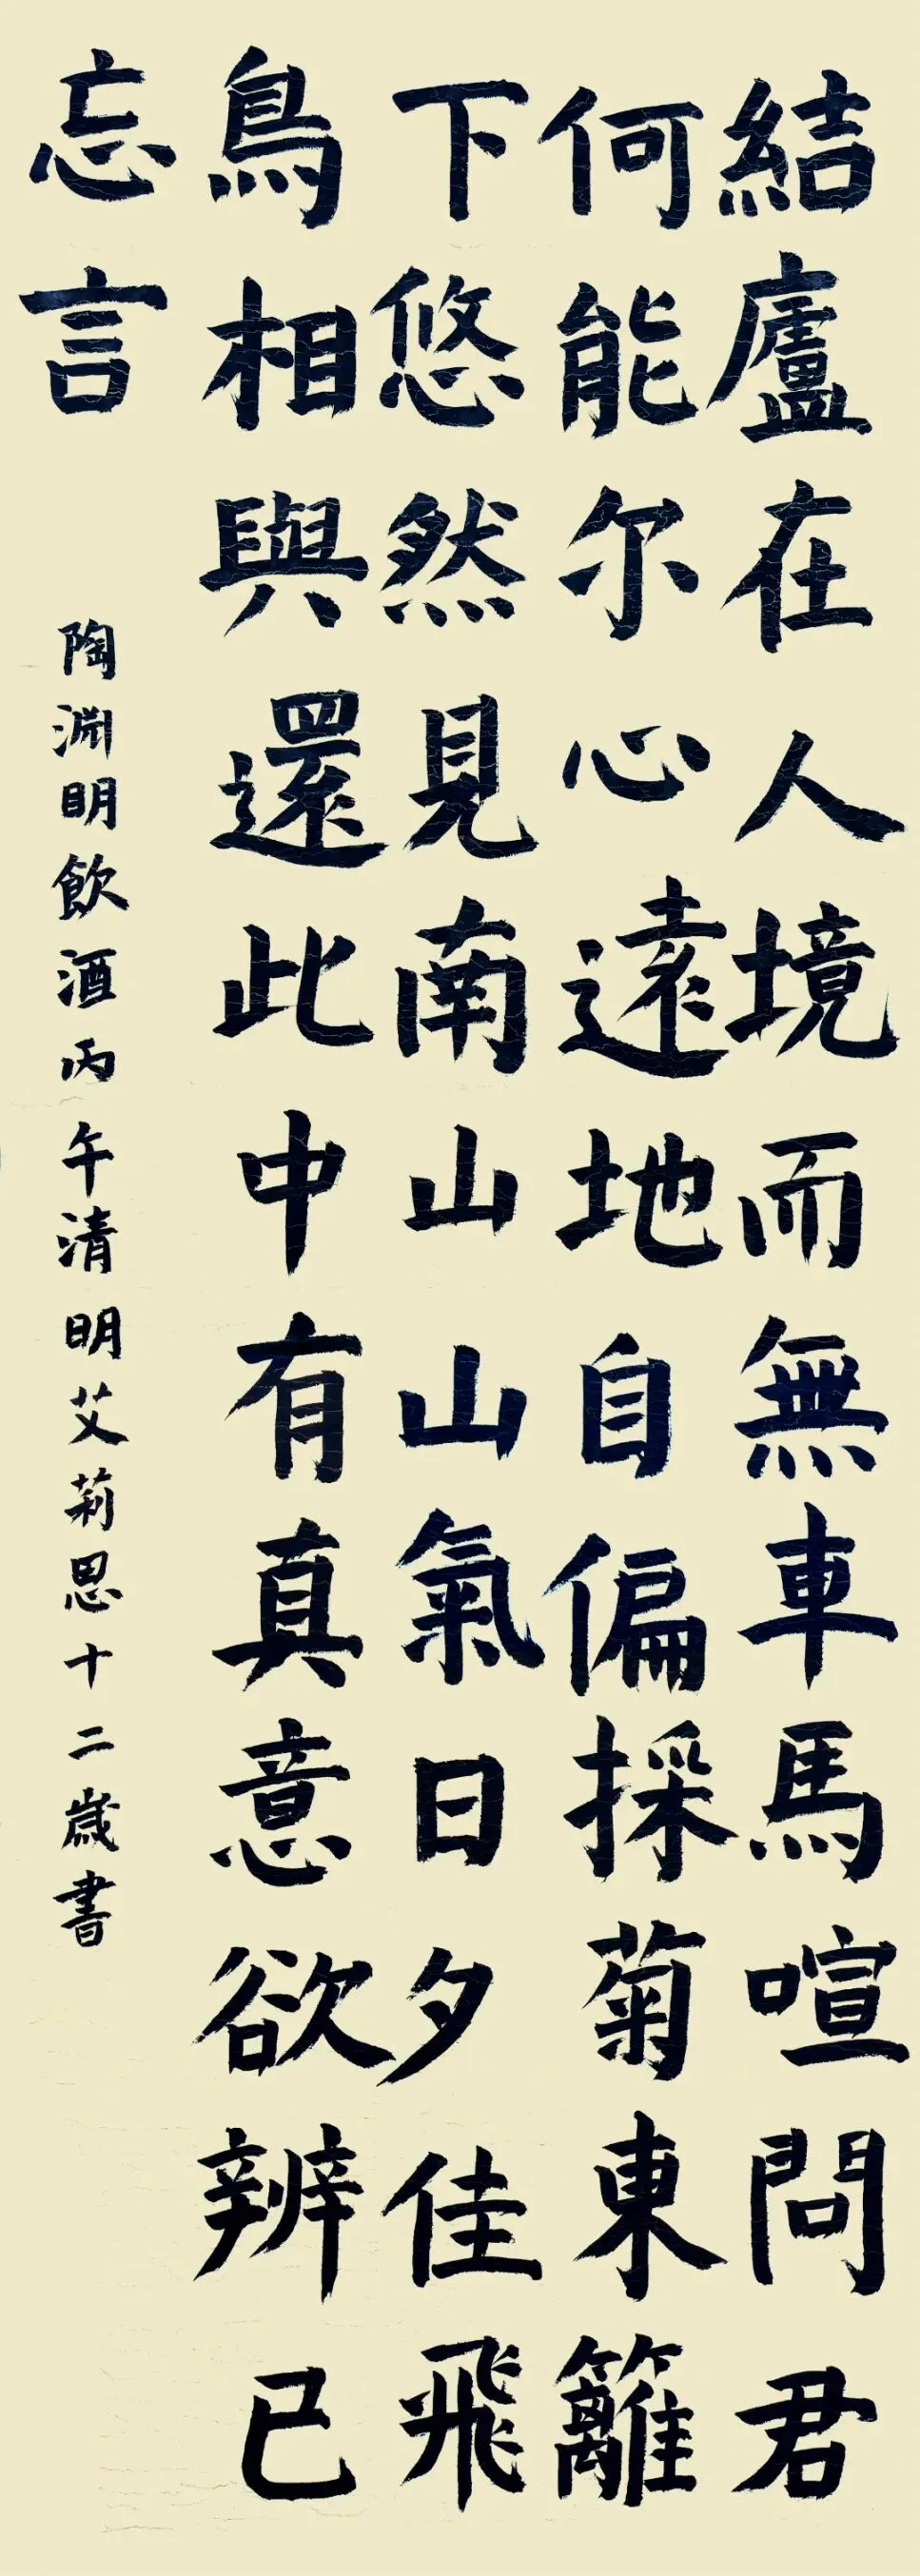 結廬在人境而無車馬喧問君
何能尔心遠地自偏採菊東籬
下悠然見南山山氣日夕佳飛
鳥相與還此中有真意欲辨已
忘言
陶淵明飲酒丙午清明艾莉思十二歲書